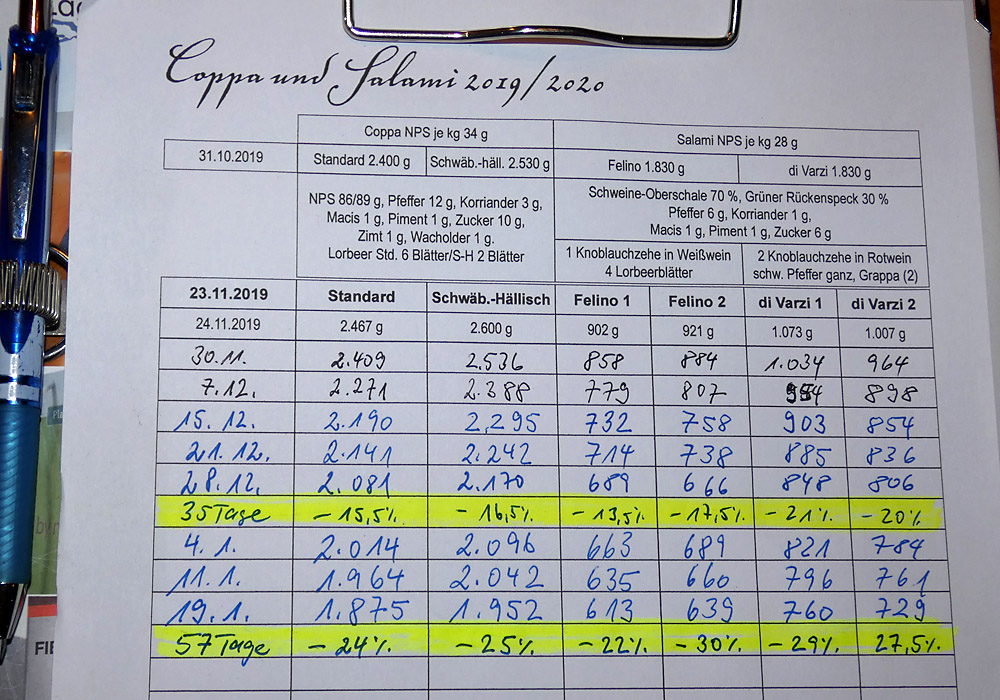 Coppa und Salami 2019/2020
Coppa NPS je kg 34 g Salami NPS je kg 28 g
31.10.2019 Standard 2.400 g Schwäb.-häll. 2.530 g Felino 1.830 g di Varzi 1.830 g
NPS 86/89 g, Pfeffer 12 g, Korriander 3 g,
Macis 1 g, Piment 1 g, Zucker 10 g,
Zimt 1 g, Wacholder 1 g.
Lorbeer Std. 6 Blätter/S-H 2 Blätter
Schweine-Oberschale 70 %, Grüner Rückenspeck 30 %
Pfeffer 6 g, Korriander 1 g,
Macis 1 g, Piment 1 g, Zucker 6 g
1 Knoblauchzehe in Weißwein
4 Lorbeerblätter
2 Knoblauchzehe in Rotwein
schw. Pfeffer ganz, Grappa (2)
23.11.2019 Standard Schwäb.-Hällisch Felino 1 Felino 2 di Varzi 1 di Varzi 2
24.11.2019 2.467 g 2.600 g 902 g 921 g 1.073 g 1.007 g
30.11. 2.409 2.536 858 884 1.034 964
7.12. 2.271 2.388 779 807 954 898
15.12. 2.190 2,295 732 758 903 854
21.12. 2.141 2.242 714 738 885 836
28.12. 2.081 2.170 689 666 848 806
35 Tage -15,5% -16,5% -13,5% -17,5% -21% -20%
4.1. 2.014 2.096 663 689 821 784
11.1. 1.964 2.042 635 660 796 761
19.1. 1.875 1.952 613 639 760 729
57 Tage -24% -25% -22% -30% -29% 27,5%